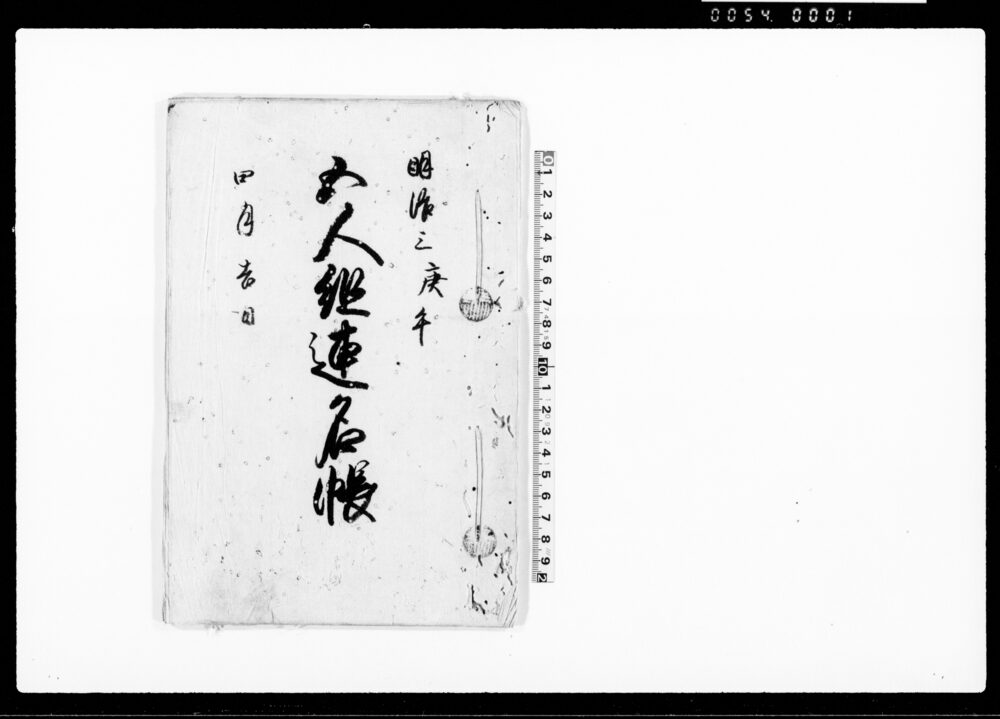 0054. 0001
明治三庚午
五人組連名帳
四月吉日
0 1 2 3 4 5 6 7 8 9 10 1 2 3 4 5 6 7 8 9 2